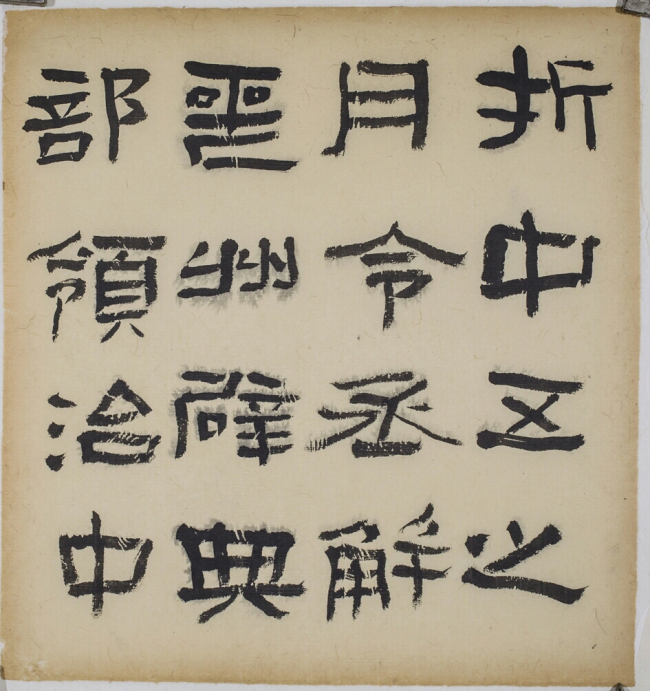 折中五之
月令丞解
州辟典
部領治中